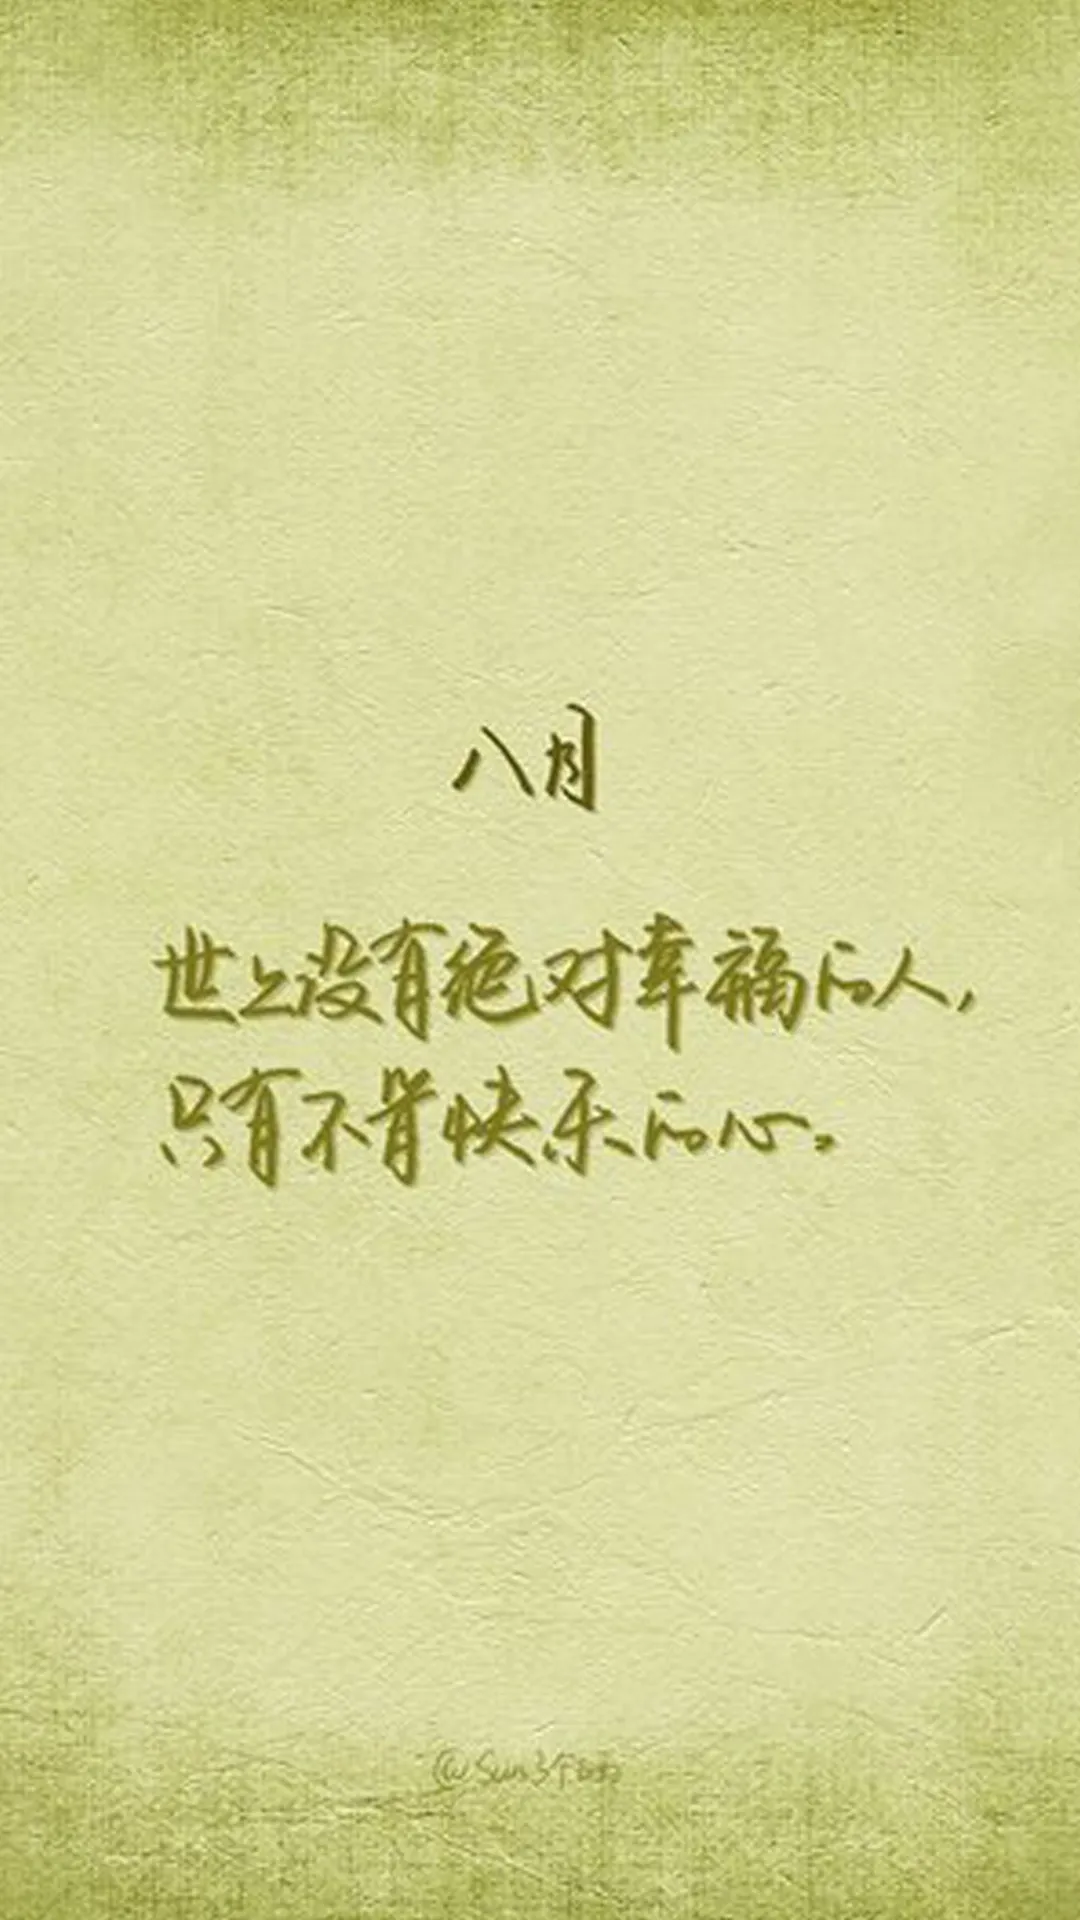 八月
世上没有绝对幸福的人,
只有不肯快乐的心。